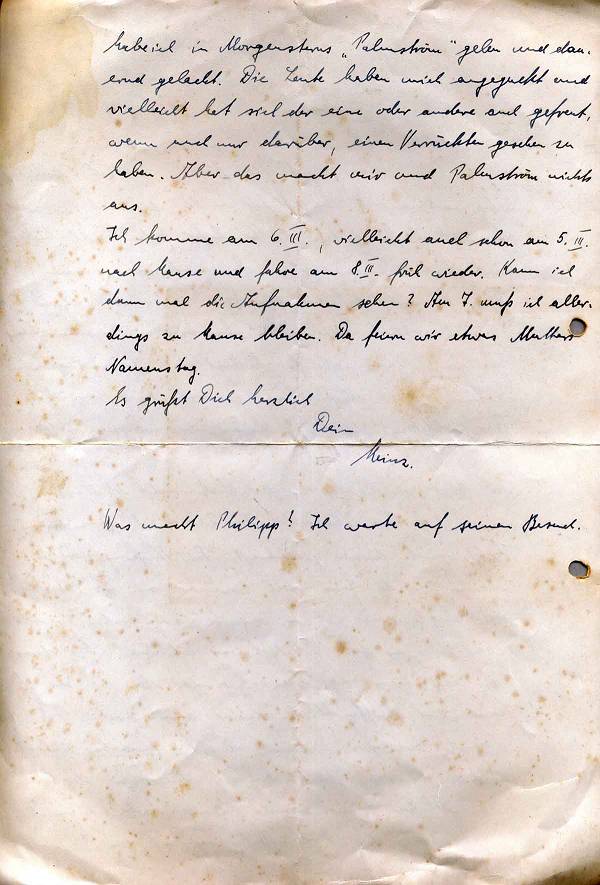 habe ich in Morgensterns „Palmström" gelesen und dau-
ernd gelacht. Die Leute haben mich angeguckt und
vielleicht hat sich der eine oder andere auch gefreut,
wenn auch nur darüber, einen Verrückten gesehen zu
haben. Aber das macht mir und Palmström nichts
aus.
Ich komme am 6. III., vielleicht auch schon am 5. III.
nach Hause und fahre am 8. III. früh wieder. Kann ich
dann mal die Aufnahmen sehen? Am 7. muß ich aller-
dings zu Hause bleiben. Da feiern wir etwas Mutters
Namenstag.
Es grüßt Dich herzlich
Dein
Heinz.
Was macht Philipp! Ich warte auf seinen Besuch.